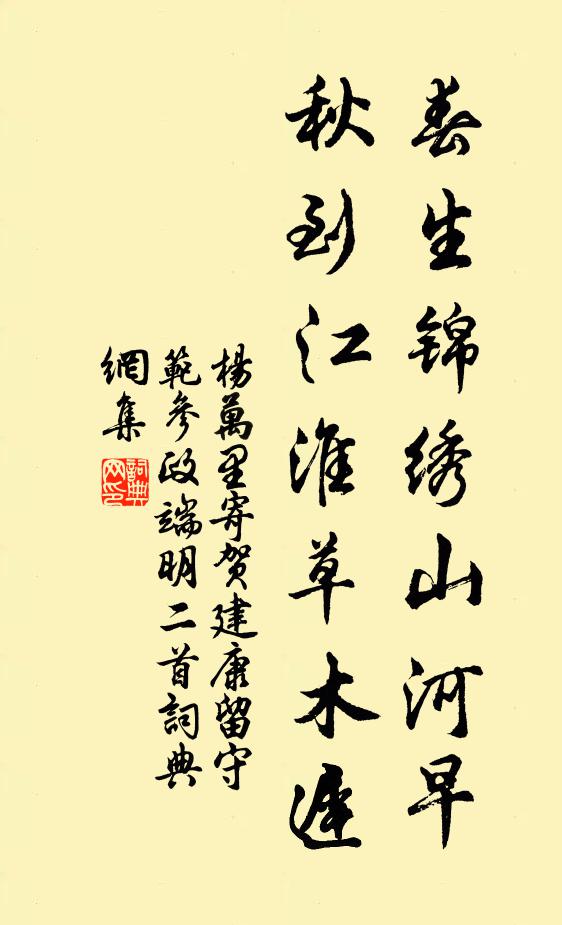 春生锦绣山河早
秋到江淮草木遲
楊萬里寄贺建康留守
範參政端明二首詞典
網集
詞典
网印